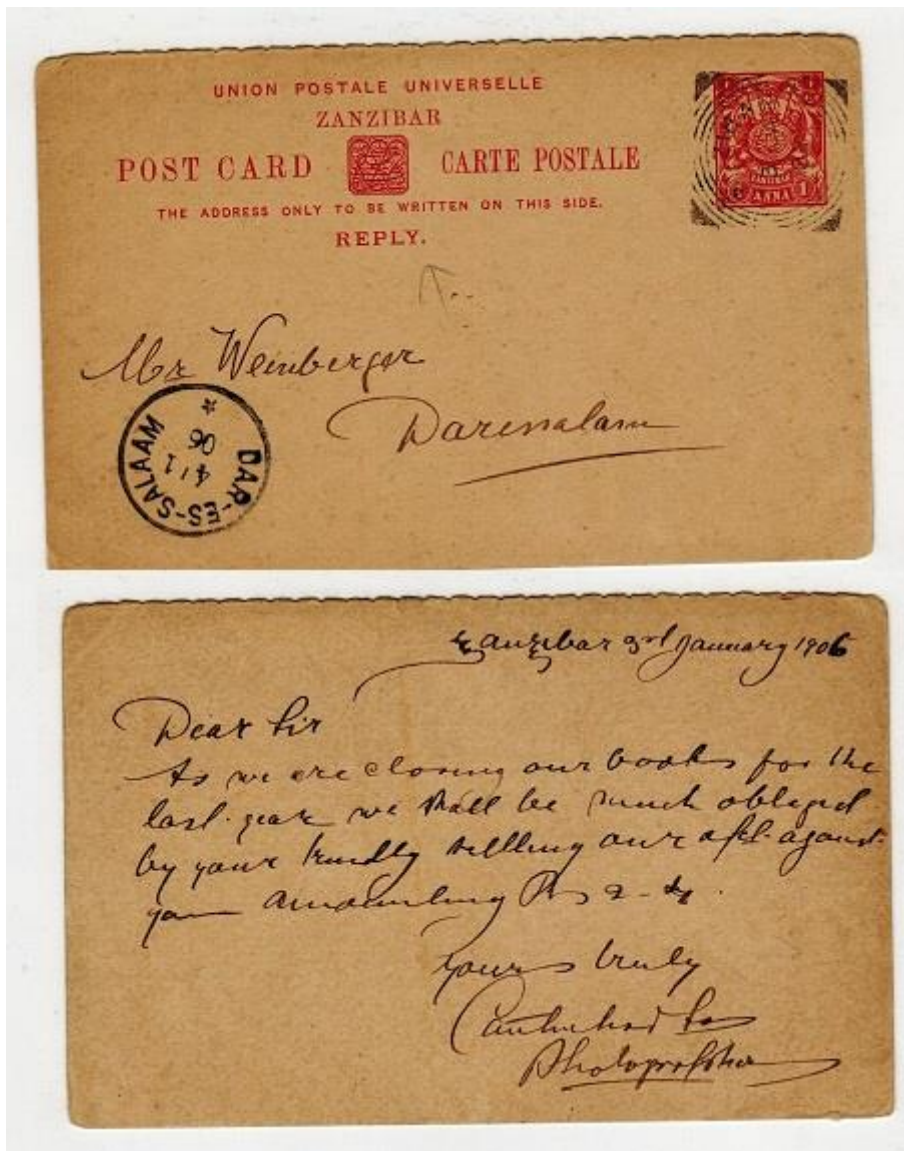 UNION POSTALE UNIVERSELLE
ZANZIBAR
POST CARD CARTE POSTALE
THE ADDRESS ONLY TO BE WRITTEN ON THIS SIDE.
REPLY.
ANNA 1
Mr Weinberger
Daressalam
DAR-ES-SALAAM
4/1
06
Zanzibar 3rd January 1906
Dear Sir
As we are closing our books for the
last year we shall be much obliged
by your kindly settling our a/c against
you amounting Rs 2-
Yours truly